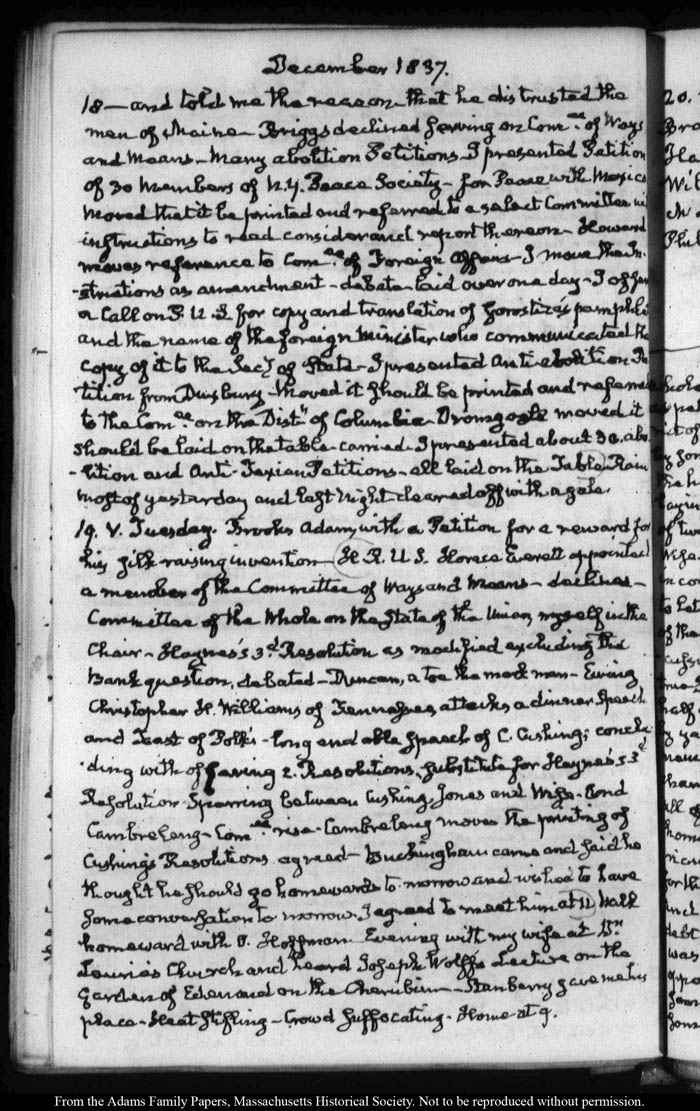 December 1837.
18 — and told me the reason that he distrusted the
men of Maine — Briggs declined serving on Com.ee of Ways
and Means — Many abolition Petitions. I presented Petition
of 30 members of N.Y. Peace Society — for Peace with Mexico
Moved that it be printed and referred to a select Committee
instructions to read consider and report thereon — Howard
moves reference to Com.ee of Foreign Affairs — I move the In-
-structions as amendment — debate laid over one day — I offer
a Call on P. U.S. for copy and translation of Gorostiza's pamphlet
and the name of the foreign Minister who communicated the
copy of it to the Secy of State — I presented anti abolition Pe
tition from Duxbury — Moved it should be printed and referred
to the Com.ee on the Dist.t of Columbia — Dromgoole moved it
should be laid on the table — carried — I presented about 30. abo
-lition and Anti-Texian Petitions — all laid on the Table. Rain
most of yesterday and last Night cleared off with a gale.
19. V. Tuesday. Brooks Adams, with a Petition for a reward for
his silk raising invention — H. R. U. S. Horace Everett appointed
a member of the Committee of Ways and Means — declines —
Committee of the Whole on the State of the Union, myself in the
Chair — Haynes's 3.d Resolution as modified excluding the
Bank question, debated — Duncan, a toe the mark man — Ewing
Christopher H. Williams of Tennessee, attacks a dinner Speech
and Toast of Polk's — long and able speech of C. Cushing; conclu
-ding with offering 2. Resolutions, substitute for Haynes's 3.d
Resolution. Sparring between Cushing, Jones and Wise. And
Cambreleng — Com.ee rise. Cambreleng moves the printing of
Cushing's Resolutions agreed — Buckingham came and said he
thought he should go homewards to-morrow and wished to have
some conversation to morrow. I agreed to meet him at 11. Walk
homeward with O. Hoffman. Evening with my wife at
Church and heard Joseph Wolff's Lecture on the
Garden of Eden and on the Cherubim — Stanberry gave me his
place — Heat stifling — Crowd suffocating — Home at 9.
20.
From the Adams Family Papers, Massachusetts Historical Society. Not to be reproduced without permission.